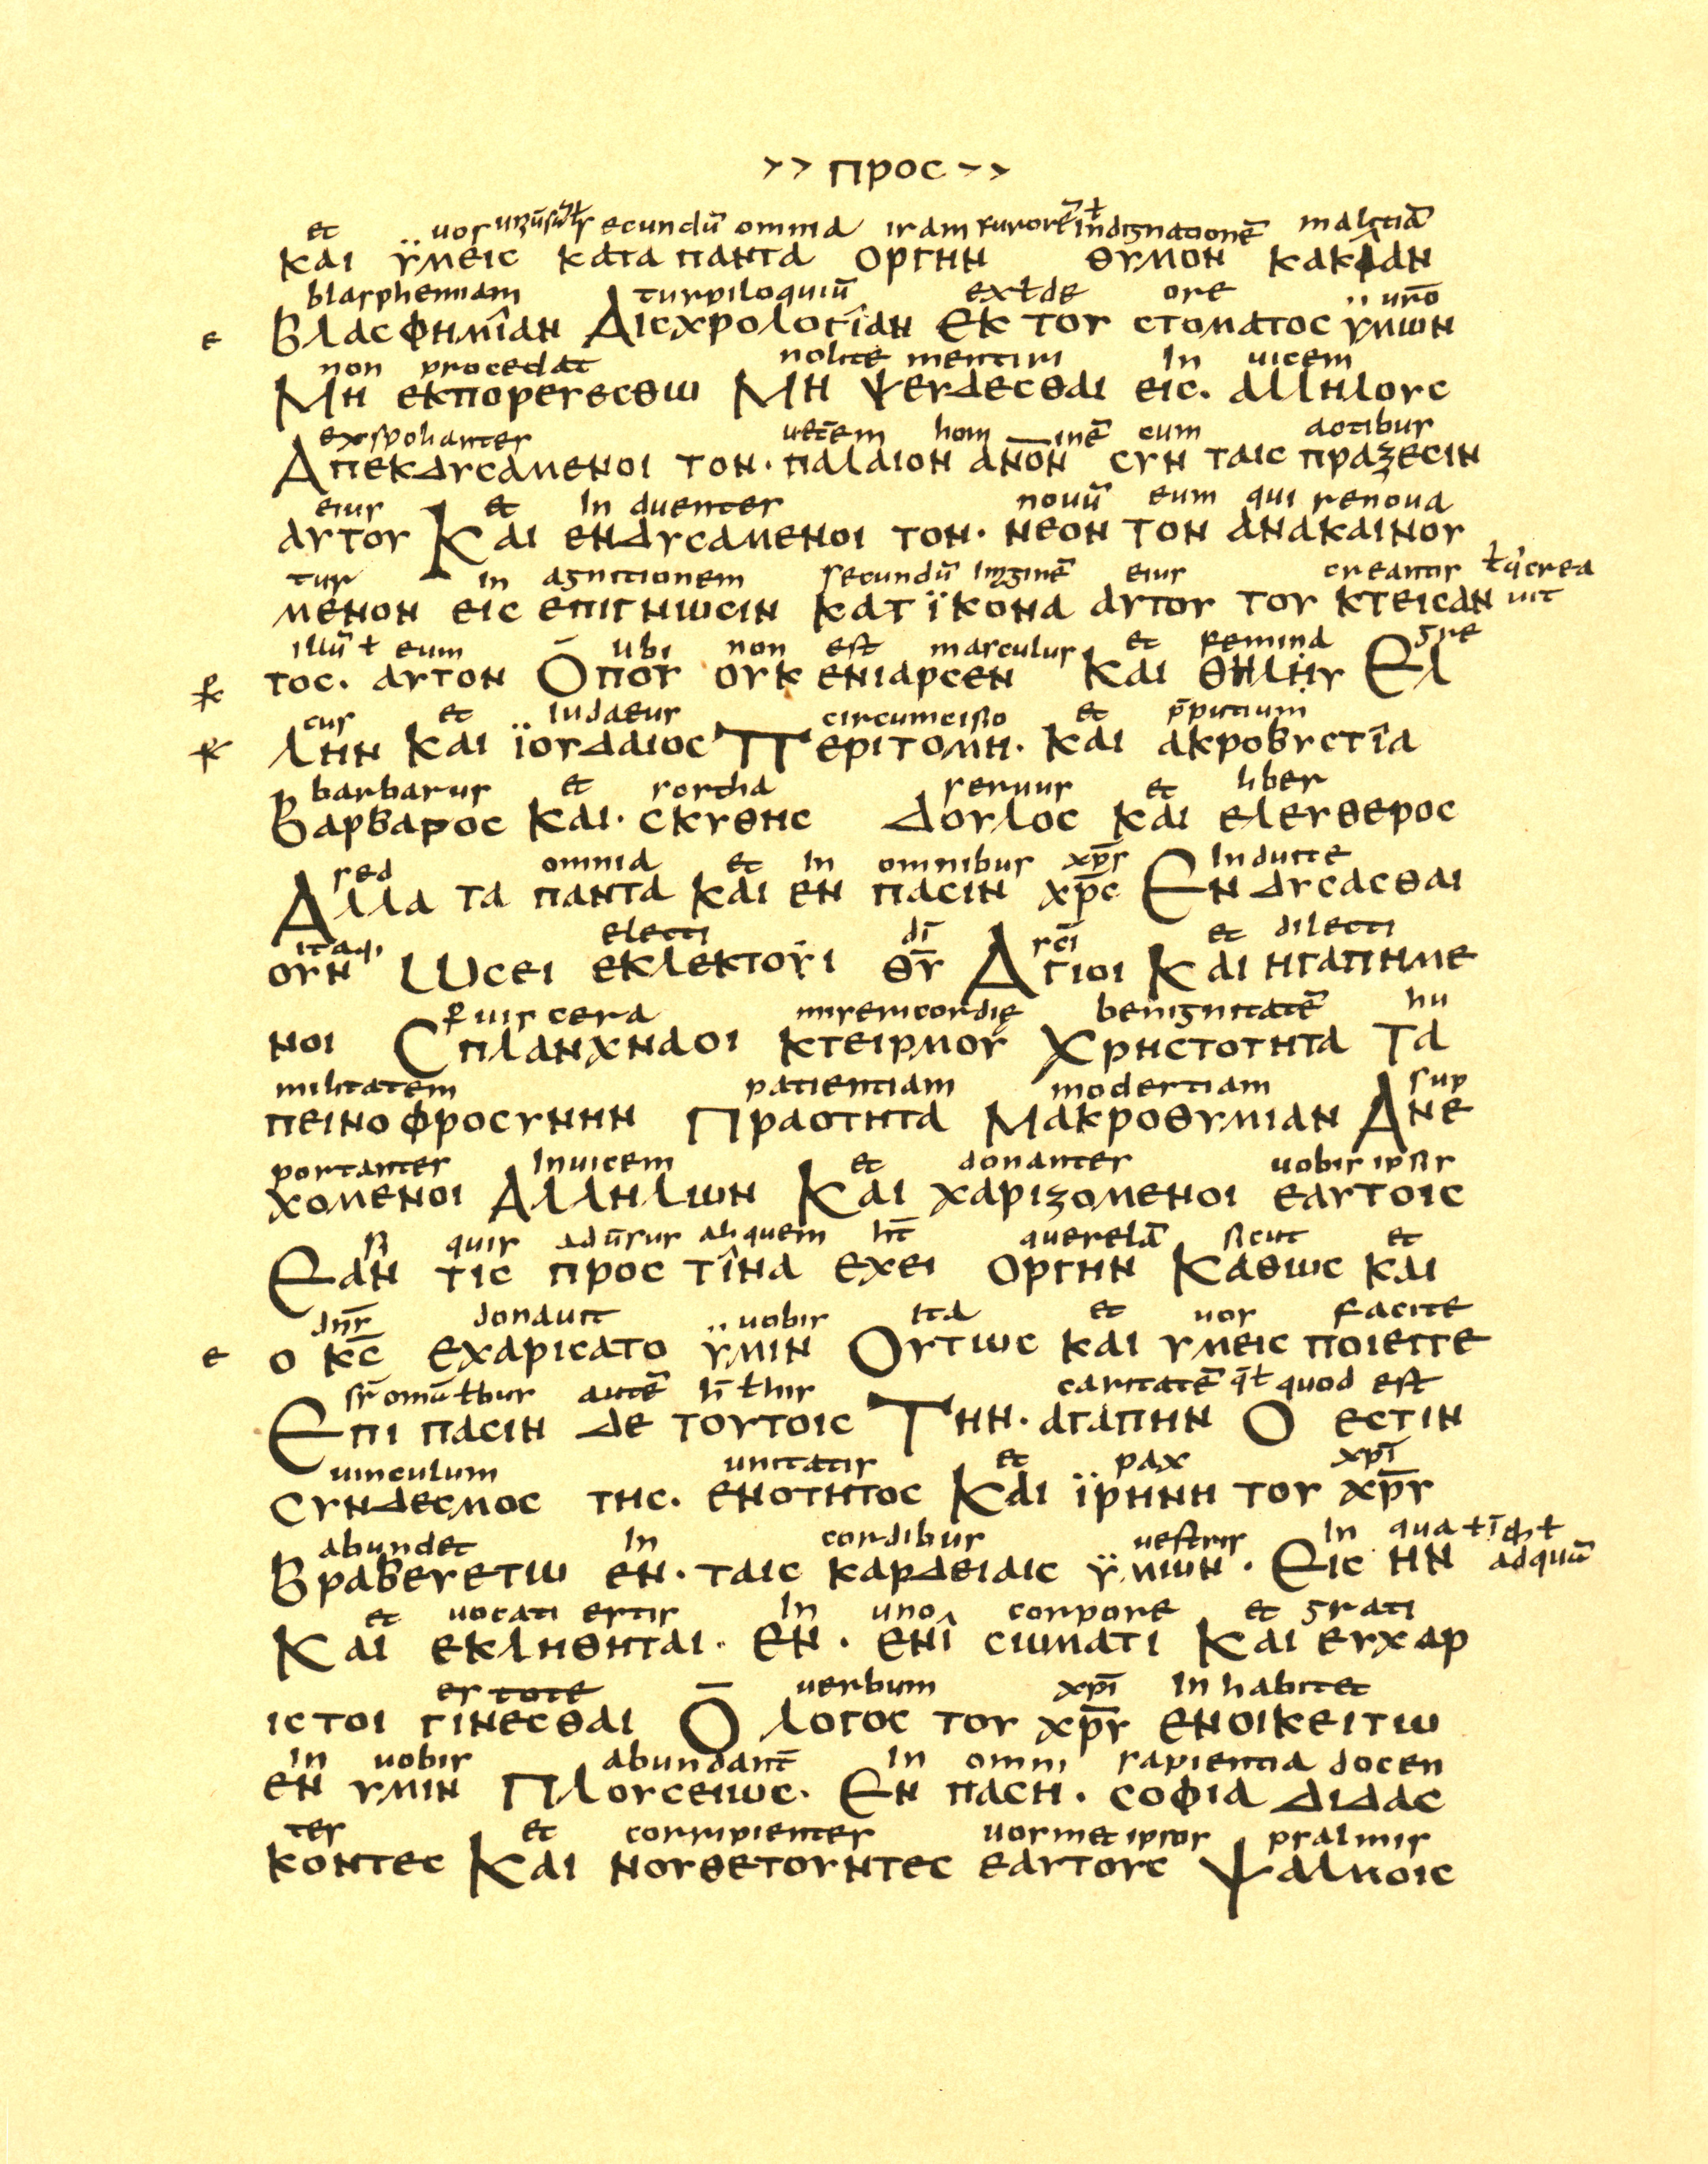 >> προс ~>
et uos uniusał secundū omnia iram furorē ł indignationē malitiā
και ϋμεις κατα παντα οργην θυμον κακιαν
blasphemiam turpiloquiū exłde ore uro
e Βλασφημîαν Διсχρολογîαν εκ του στοματος ϋμων
non procedat nolite mentiri In uicem
Μη εκπορευεσθω Μη ψευδεσθαι εις· αλληλους
exspoliantes uetēem hom inē cum actibus
Απεκδυσαμενοι τον· παλαιον ανο̄ν συν ταις πραξεσιν
eius et In duentes nouū eum qui renoua
αυτου Και ενδυσαμενοι τον· νεον τον ανακαινου
tur in agnitionem secundū Imaginē eius creantis ł q' crea
μενον εις επιγνωσιν κατ ϊκονα αυτου του κτεισαν uit
illū ł eum ubi non est masculus et femina gre
τος· αυτον Ōπου ουκ ενιαρσεν Και θηληυ Ελ
cus et Iudaeus circumcisio et p̄putium
λην και ϊουδαιος Περιτομη· και ακροβυστîα
barbarus et scithia seruus et liber
Βαρβαρος και· σκυθης δουλος και ελευθερος
sed omnia et In omnibus xp̄s Induite
Αλλα τα παντα και εν πασιν χρ̄ς Εν δυσασθαι
itaq; electi dī scī et dilecti
ουν Ωσει εκλεκτοϊ θῡ Αγιοι Και ηγαπημε
f uiscera misericordię benignitatē hu
νοι Сπλανχναοι κτειρμου Χρηστοτητα Τα
militatem patientiam modestiam sup
πεινοφροσυνην Πραοτητα Μακροθυμιαν Ανε
portantes Inuicem et donantes uobis ipsis
χομενοι Αλληλιων Και χαριζομενοι εαυτοις
si quis adūsus aliquem ht̄ querelā sicut et
Εαν τις προς τîνα εχει Οργην Καθως και
dn̄s donauit uobis Ita et uos facite
e ο κ̄ς εχαρισατο ϋμιν Ουτως και υμεις ποιειτε
sr̄ omū łbus autē h̄ łhis caritatē q̄ł quod est
Επι πασιν δε τουτοις Την· αγαπην Ο εστιν
uinculum unitatis et pax xpī
συνδεσμος της· ενοτητος Και ϊρηνη του χρ̄υ
abundet In cordibus uestris In qua łīq̄ł
Βραβευετω εν· ταις καρδειαις ϋμων· Εις ην adquā
et uocati estis In uno corpore et grati
Και εκληθηται· εν· ενî σωματι Και ευχαρ
es tote uerbum xpī In habitet
ιστοι γινεσθαι Ō λογος του χρ̄υ ενοικειτω
In uobis abundant̄ In omni sapientia docen
εν υμιν Πλουσειως· Εν παση· σοφια διδας
tes et corripientes uosmet ipsos psalmis
κοντες Και νουθετουντες εαυτους Ψαλμοις